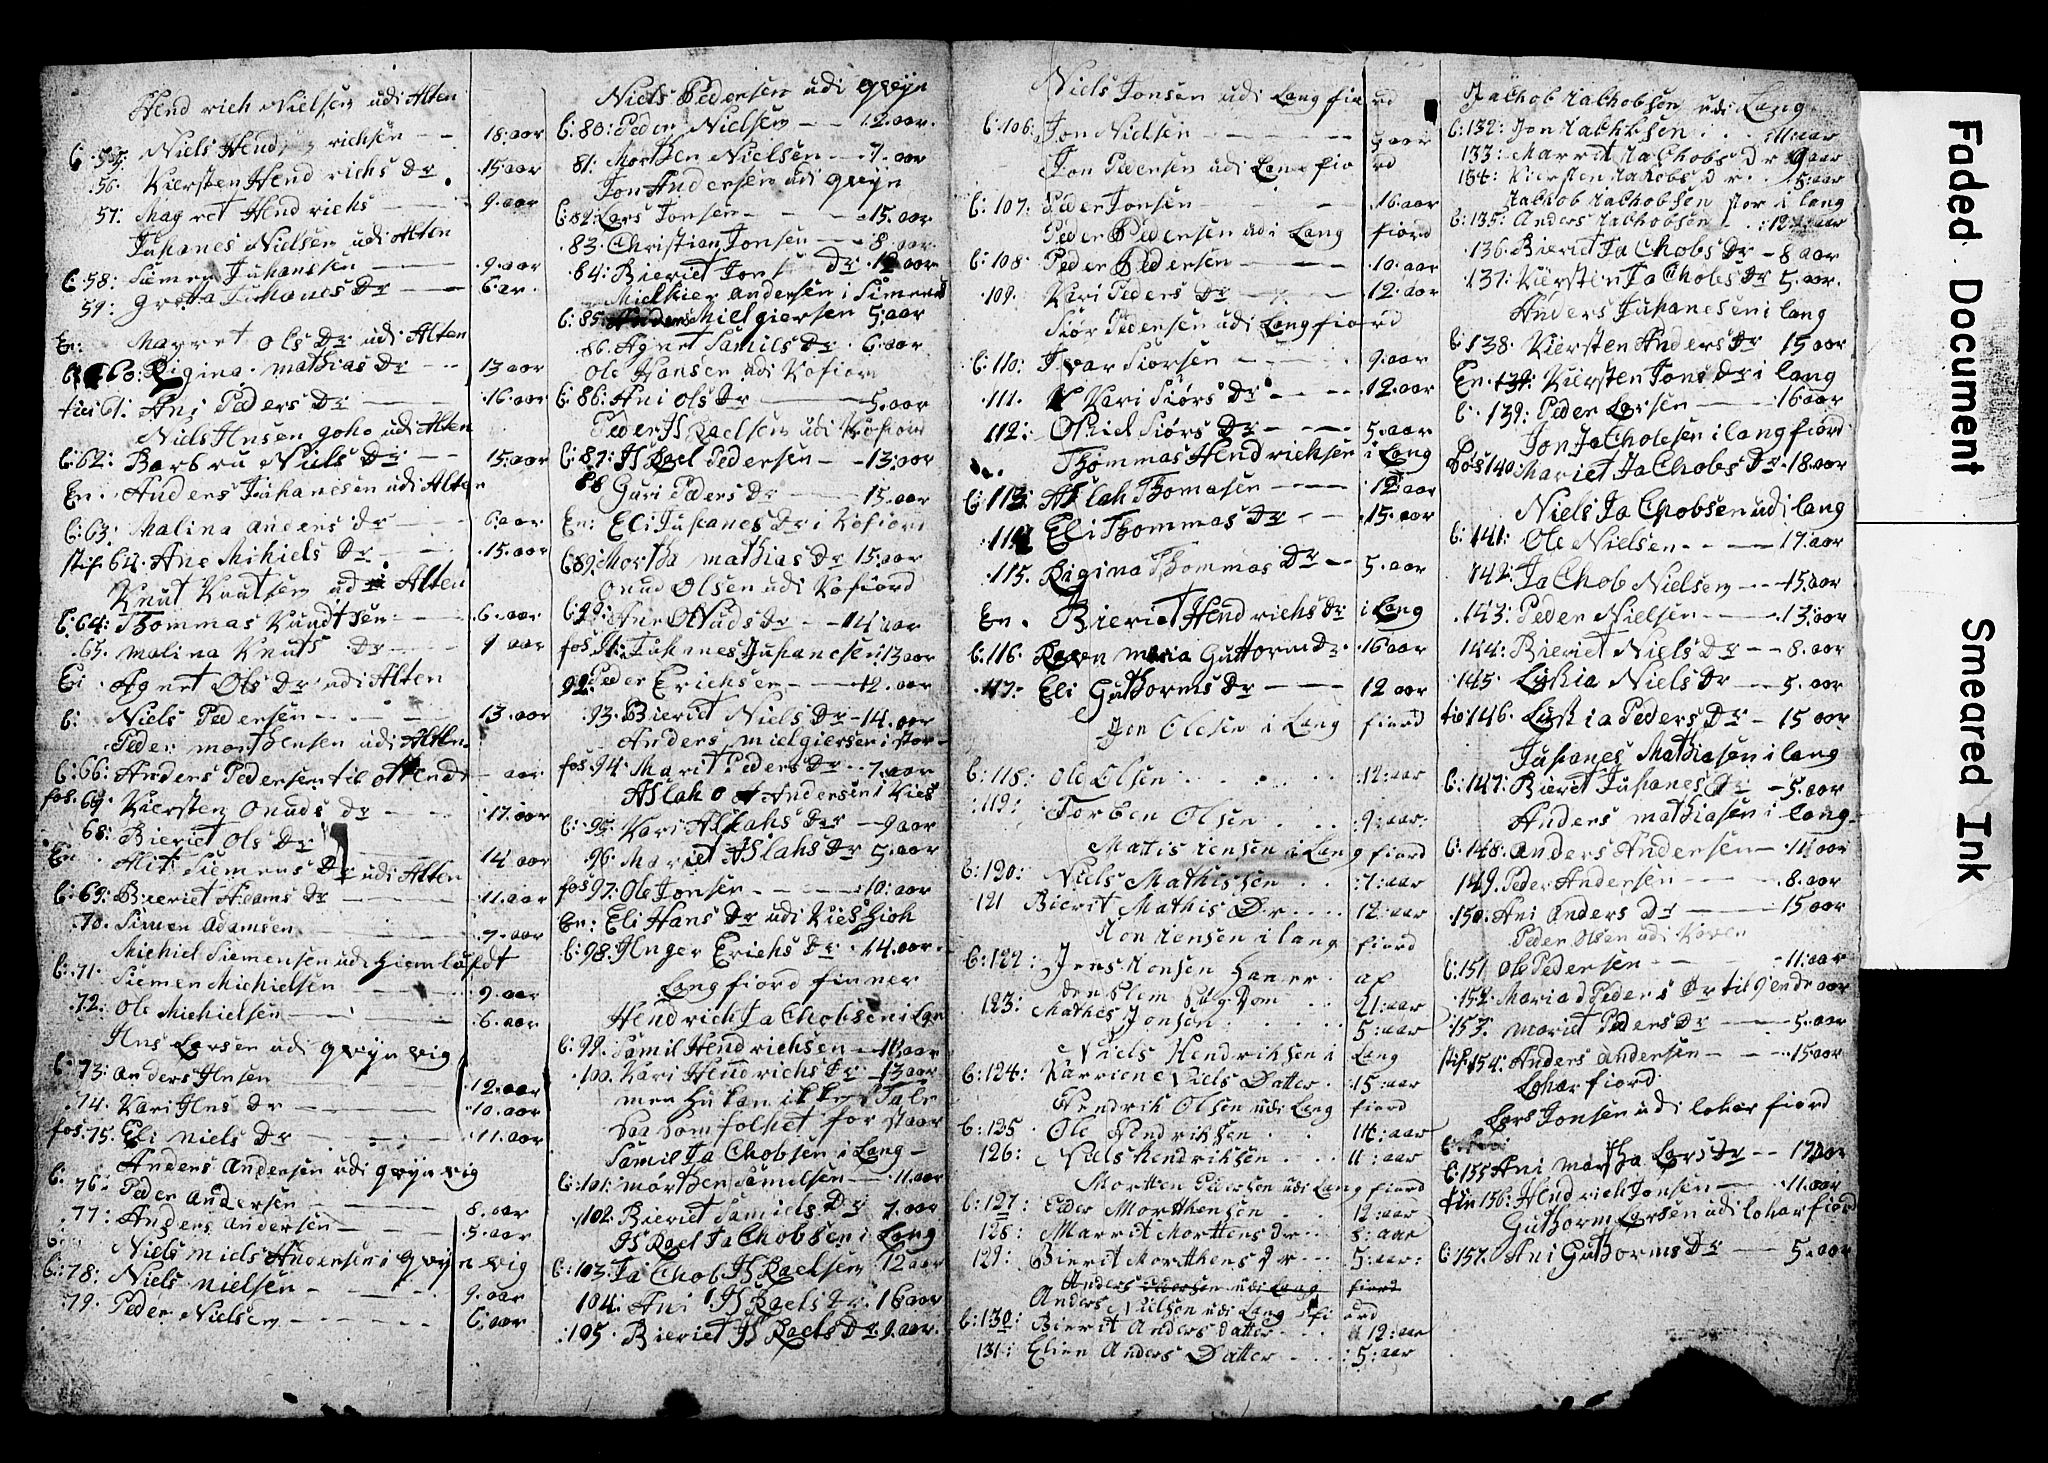 Hendrich Nielsen udi Alten
b:55. Niels Hendrichsen 18:aar
56. Kiersten Hendrichs Dr. 15 aar
57: Magret Hendrichs 9. aar
Juhanes Nielsen udi Alten
b:58: Siemen Juhanssen 9. aar
59: Gretta Juhanes Dr 6 ar.
En: Marret Ols Dr udi Alten
b:60: Rigina mathias Dr 13 aar
61: Ani Peders Dr 16. aar
Niels Hnsen goho udi Alten
b:62: Barbru Niels Dr 15:aar
En. Anders Juhanesen udi Alten
b:63: Malina anders Dr 6 aar
stif 64. Ane Mihiels Dr 15. aar
Knut Knutsen udi Alten
b:64: Thommas Knudtsen 6. aar
65. malina Knuts Dr 9 aar
En. Agnet Ols Dr udi Alten
b: Niels Pedersen 13. aar
Peder morthensen udi Alten
b:66: Anders Pedersen til ottende aar
fos. 67 Kiersten Onuds Dr 17:aar
68: Bieriet Ols Dr 14 aar
En. Siemens Dr udi Alten
b:69: Bieriet Adams Dr 11. aar
70. Simen Adamsen 7. aar
Michiel Siemensen udi
b:71 Siemen Michielsen 9. aar
72: Ole Michielsen 6. aar
Hns Larsen udi qvæn vig
b:73: anders Hnsen 12. aar
74. Kari Hns Dr 10. aar
fos. 75. Eli niels Dr 11. aar
Anders andersen udi qvæn vig
b:76: Peder andersen 8. aar
77: Anders andersen 5. aar
Niels niels Andersen i qvæn vig
b:78: Niels nielsen 9. aar
79. Peder Nielsen 6: aar
Niels Pedersen udi qvæn
b:80: Peder Nielsen 12. aar.
81: Morthen Nielsen 7. aar
Jon Andersen udi qvæn
b:82: Lars Jonsen 15. aar
83. Christian Jonsen 8. aar
84: Bieriet Jons Dr. aar
Mielkier andersen i Simenes
b:85: Anders Mielgiersen 5: aar
86. Agnet Samils Dr. 6. aar
Ole Hansen udi Kofiord
b:86: Ani ols Dr 5. aar
Peder Israelsen udi Kofiord
b:87: Israel Pedersen 13: aar
88 Guri Peders Dr 15. aar
En: Eli Juhanes Dr i Kofiord
b:89: Mortha mathias Dr 15: aar
Onud Olsen udi Kofiord
b:90: Ane Onuds Dr 14 aar
fos. 91: Juhanes Juhanesen: 13 aar
92: Peder Erichsen 12. aar
93. Bieriet Niels Dr 14. aar
Anders mielgiersen i stor
fos. 94: Mariet Peders Dr 7. aar
Aslah Andersen i Kies
b:95: Kari Aslahs Dr 9 aar
96: Mariet Aslahs Dr 5. aar
fos 97: Ole Jonsen 10: aar
En: Eli Hans Dr udi Kies
b:98. Hnger Erichs Dr 14. aar.
Langfiord finner
Hendrich Ja Chobsen i Lgn
b:99. Samil Hendrichsen 18 aar
100. Kari Hendrichs Dr 13 aar
men hu kan ikke Tale
saa som folket for staar
Samil Ja Chobsen i Lang
b:101: morthen Samilsen 11. aar
102. Bieriet Samils Dr 7. aar
Israel Ja Chobsen i Lang
b:103: Ja Chob Israelsen 12 aar
104: Ani Israels Dr. 16 aar
105. Bieriet Israels Dr. 9. aar.
Niels Jonsen udi Lang fiord
b:106: Jon Nielsen aar
Jon Pedersen udi Lang fiord
b:107: Peder Jonsen 16 aar
Peder Pedersen udi Lang fiord
b:108: Peder Pedersen 10. aar
109. Kari Peders Dr 12. aar
Siør Pedersen udi Langfiord
b:110: Ivar Siørsen 9. aar
111. Kari Siørs Dr 12. aar
112: Siørs Dr 5. aar
Thommas Hendrichsen i Lang
b:113: Aslah Thomasen 12: aar
114 Eli Thommas Dr 15. aar
115. Rigina Thommas Dr 5. aar
En. Bieriet Hendrichs Dr i Lang
b:116. Guttorm Dr. 16 aar
117: Eli Guthorms Dr 12 aar
Jon Olesen i Lang fiord
b:118: Ole Olsen 12: aar
119: Torben Olsen 9: aar:
Matis Jensen i Lang fiord
b:120: Niels Mathissen 7: aar
121 Bierit Mathis Dr. 12: aar
Jon Jensen i lang fiord
b:122: Jens Jonsen haner af
den slem Sygdom 21: aar
123: Mathis Jonsen 5: aar
Niels Hendriksen i Lang
b:124: Karriene Niels Datter 15: aar
Hendrik Olsen udi Lang fiord
b:125 Ole Hendriksen 14: aar
126: Niels Hendriksen 11: aar
Mortten Pedersen udi Lang fiord
b:127: Peder Morthensen 12: aar
128: Marrit Morttens Dr 8: aar
129: Bierit Morthens Dr 5: aar:
Anders Pedersen udi Lang fiord
Anders Nielsen udi Lang fiord
b:130: Bierit Anders Datter 12: aar
131: Elien Anders Datter 5: aar
Jachob Jachobsen udi Lang
b:132: Jon Jachobsen 11: aar
133: Marrit Jachobs Dr 9 aar
134: Kiersten Jachobs Dr. 5: aar
Jachob Jachobsen stor i lang
b:135: Anders Jachobsen 12: aar
136. Bieriet Ja Chobs Dr 8 aar
137: Kiersten Ja Chobs Dr 5. aar.
Anders Juhanesen i lang
b:138. Kiersten Anders Dr 15 aar
En. 139: Kiersten Jons Dr i lang
b. 139: Peder Larsen 16: aar
Jon Ja Chobsen i langfiord
Løs 140: Mariet Ja Chobs Dr 18. aar
Niels Ja Chobsen udi lang
b:141: Ole Nielsen 17. aar
142: Ja Chob Nielsen 15. aar
143: Peder Nielsen 13: aar
144: Bieriet Niels Dr 8. aar
145. Lykia Niels Dr 5. aar
146. Peders Dr. 15 aar
Juhanes Mathiasen i lang
b:147: Bieriet Juhanes Dr 5. aar
Anders mathiasen i lang
b:148: anders Andersen 11 aar
149. Peder Andersen 8. aar
150: Ani anders Dr 15 aar
Peder Olsen udi Koven
b:151 Ole Pedersen 11: aar
152. Maria Peders Dr til 9ende aar
153. mariet Peders Dr 5. aar
stif. 154: Anders andersen 15 aar
Lohar fiord
Lars Jonsen udi lohar fiord
b:155 Ani martha Lars Dr 17 aar
156: Hendrich Jonsen 11. aar
Guthorm Larsen udi lohar fiord
b:157. Ani Guthorms Dr 5. aar
Faded Document
Smeared Ink